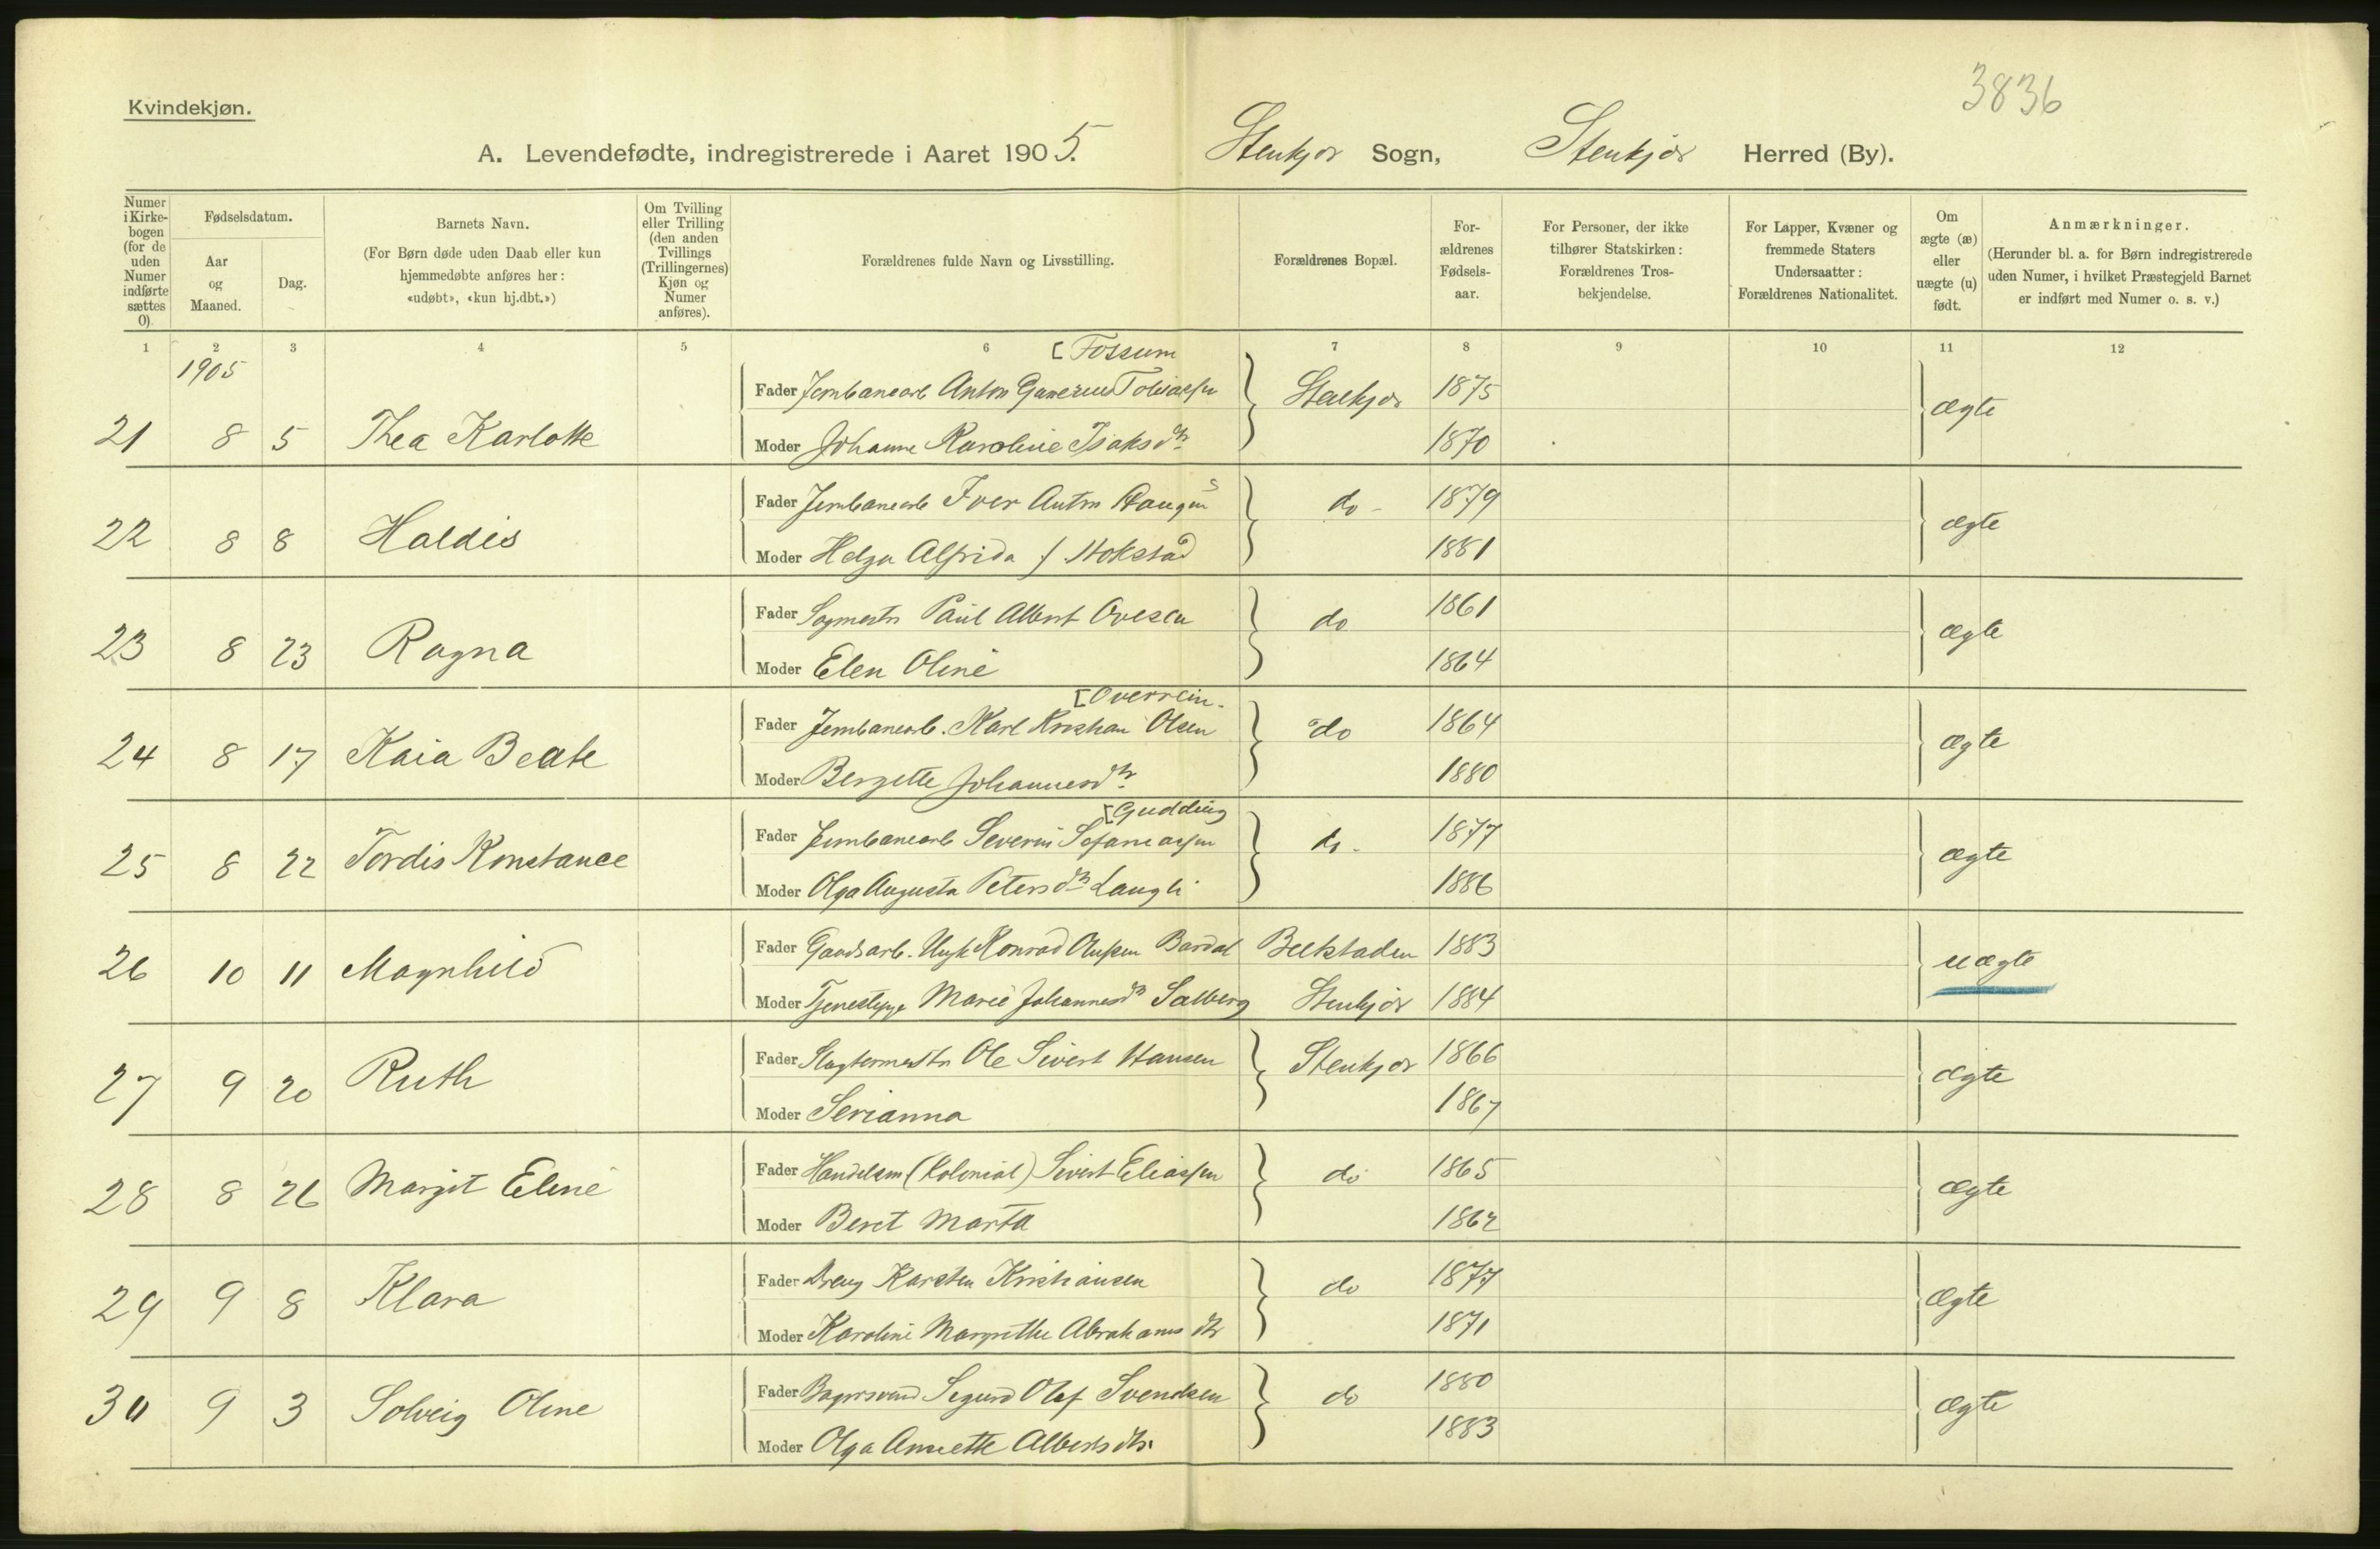 3836
Kvindekjøn.
A. Levendefødte, indregistrerede i Aaret 1905. Stenkjør Sogn, Stenkjør Herred (By).
Numer i Kirkebogen (for de uden Numer indførte sættes 0).
Fødselsdatum.
Aar og Maaned.
Dag.
Barnets Navn.
(For Børn døde uden Daab eller kun hjemmedøbte anføres her: «udøbt», «kun hj.dbt.»)
Om Tvilling eller Trilling (den anden Tvillings (Trillingernes) Kjøn og Numer anføres).
Forældrenes fulde Navn og Livsstilling.
Forældrenes Bopæl.
Forældrenes Fødselsaar.
For Personer, der ikke tilhører Statskirken: Forældrenes Trosbekjendelse.
For Lapper, Kvæner og fremmede Staters Undersaatter: Forældrenes Nationalitet.
Om ægte (æ) eller uægte (u) født.
Anmærkninger.
(Herunder bl. a. for Børn indregistrerede uden Numer, i hvilket Præstegjeld Barnet er indført med Numer o. s. v.)
1 2 3 4 5 6 7 8 9 10 11 12
1905
[Fossum
Fader Jernbanearb Anton Tobiassen Stenkjør 1875
21 8 5 Thea Karlotte ægte
Moder Johanne Karoline Isaksdtr 1870
Fader Jernbanearb Iver Anton Haugen do - 1879
22 8 8 Haldis ægte
Moder Helga Alfrida f. Hokstad 1881
Fader Sagmestr Paul Albert Ovesen do 1861
23 8 23 Ragna ægte
Moder Elen Oline 1864
[Overrein.
Fader Jernbanearb. Karl Kristian Olsen do 1864
24 8 17 Kaia Beate ægte
Moder Bergette Johannesdtr 1880
[Gudding
Fader Jernbanearb Severin do - 1877
25 8 22 Tordis Konstance ægte
Moder Olga Augusta Petersdtr Langli 1886
Fader Gaardsarb. Ungk Konrad Olufsen Bardal Beitstaden 1883
26 10 11 Magnhild uægte
Moder Tjenestepige Marie Johannesdtr Salberg Stenkjør 1884
Fader Slagtermestr Ole Sivert Hansen Stenkjør 1866
27 9 20 Ruth ægte
Moder Serianna 1867
Fader Handelsm (Kolonial) Sivert Eliassen do 1865
28 8 26 Margit Eline ægte
Moder Beret Marta 1862
Fader Dreng Karsten Kristiansen do 1877
29 9 8 Klara ægte
Moder Karoline Margrethe Abrahamsdtr 1871
Fader Bagersvend Sigurd Olaf Svendsen do 1880
30 9 3 Solveig Oline ægte
Moder Olga Annette Albertsdtr. 1883